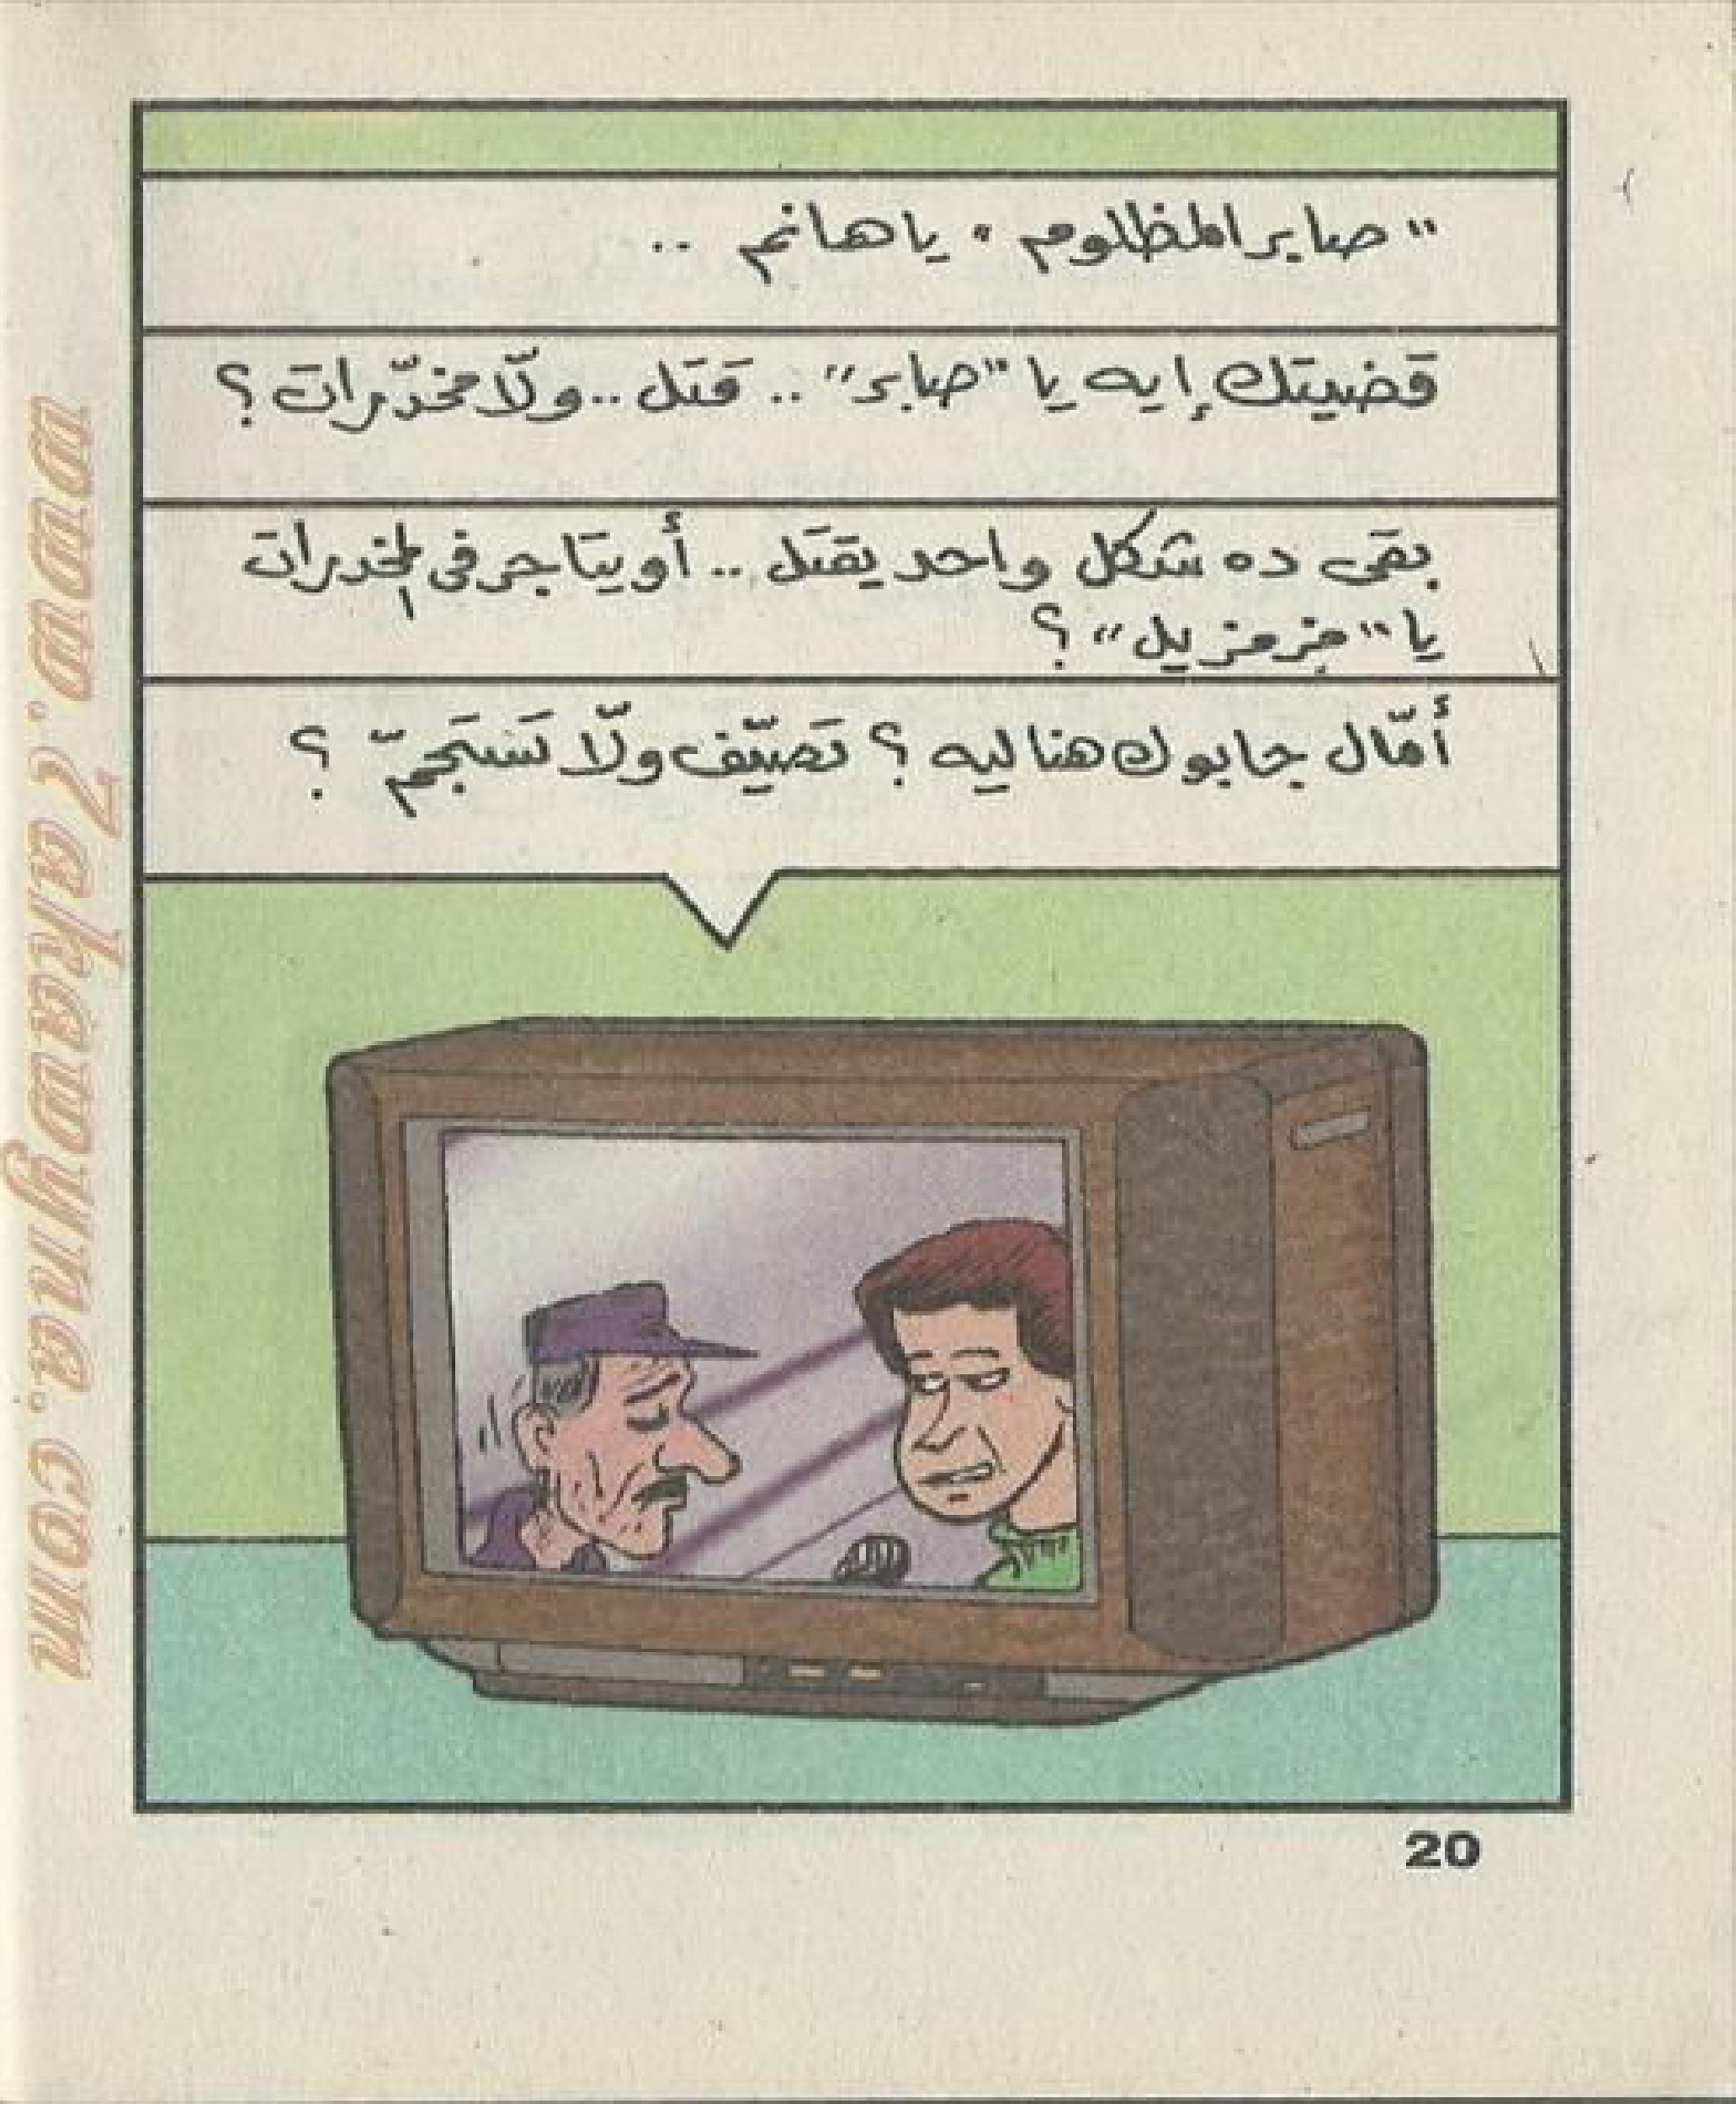 "صابر المظلوم" يا هانم ..
قضيتك إيه يا "صابر" .. قتل .. ولّا مخدّرات ؟
بقى ده شكل واحد يقتل .. أو يتاجر فى المخدرات
يا "مزمزيل" ؟
أمّال جابوك هنا ليه ؟ تصيّف ولّا تستجمّ ؟
20
www.7akawyna.com